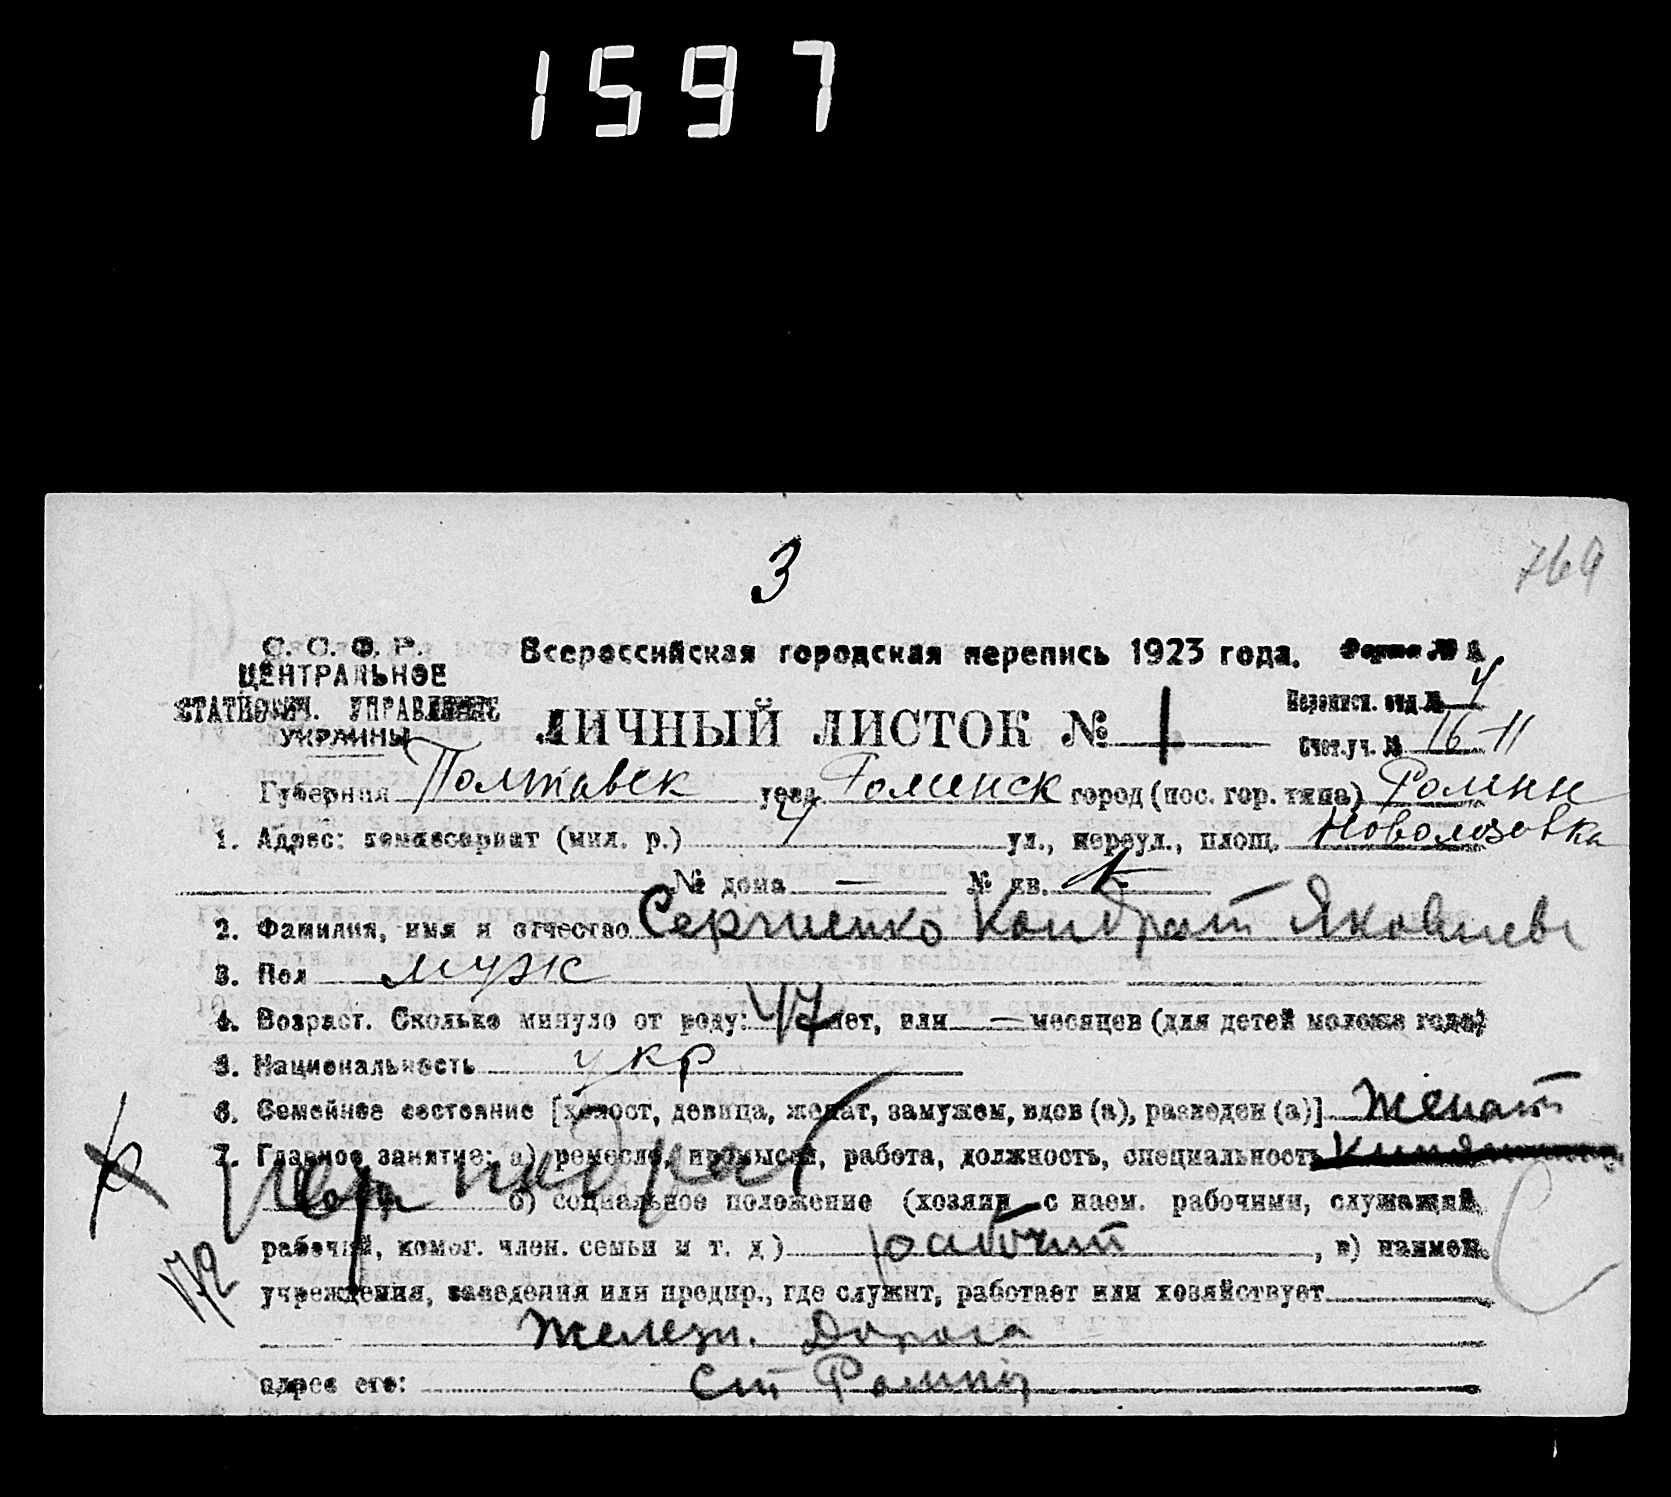 1597
3
769
С. С. Ф. Р.
ЦЕНТРАЛЬНОЕ
СТАТИСТИЧ. УПРАВЛЕНИЕ
УКРАИНЫ
Всероссийская городская перепись 1923 года.
Форма № А
ЛИЧНЫЙ ЛИСТОК № 1
Переписн. отд. № 4
Счет. уч. № 16-11
Губерния Полтавск уезд Роменск город (пос. гор. типа) Ромны
1. Адрес: комиссариат (мил. р.) 4 ул., переул., площ.
№ дома — № кв.
2. Фамилия, имя и отчество Сергиенко Кондрат Яковлев
3. Пол муж
4. Возраст. Сколько минуло от роду: 47 лет, или — месяцев (для детей моложе года)
5. Национальность укр
6. Семейное состояние [холост, девица, женат, замужем, вдов (а), разведен (а)] Женат
7. Главное занятие: а) ремесло, промысел, работа, должность, специальность
б) социальное положение (хозяин с наем. рабочими, служащий,
рабочий, помог. член. семьи и т. д.) рабочий, в) наимен.
учреждения, заведения или предпр., где служит, работает или хозяйствует
Железн. Дорога
адрес его: Ст Ромны